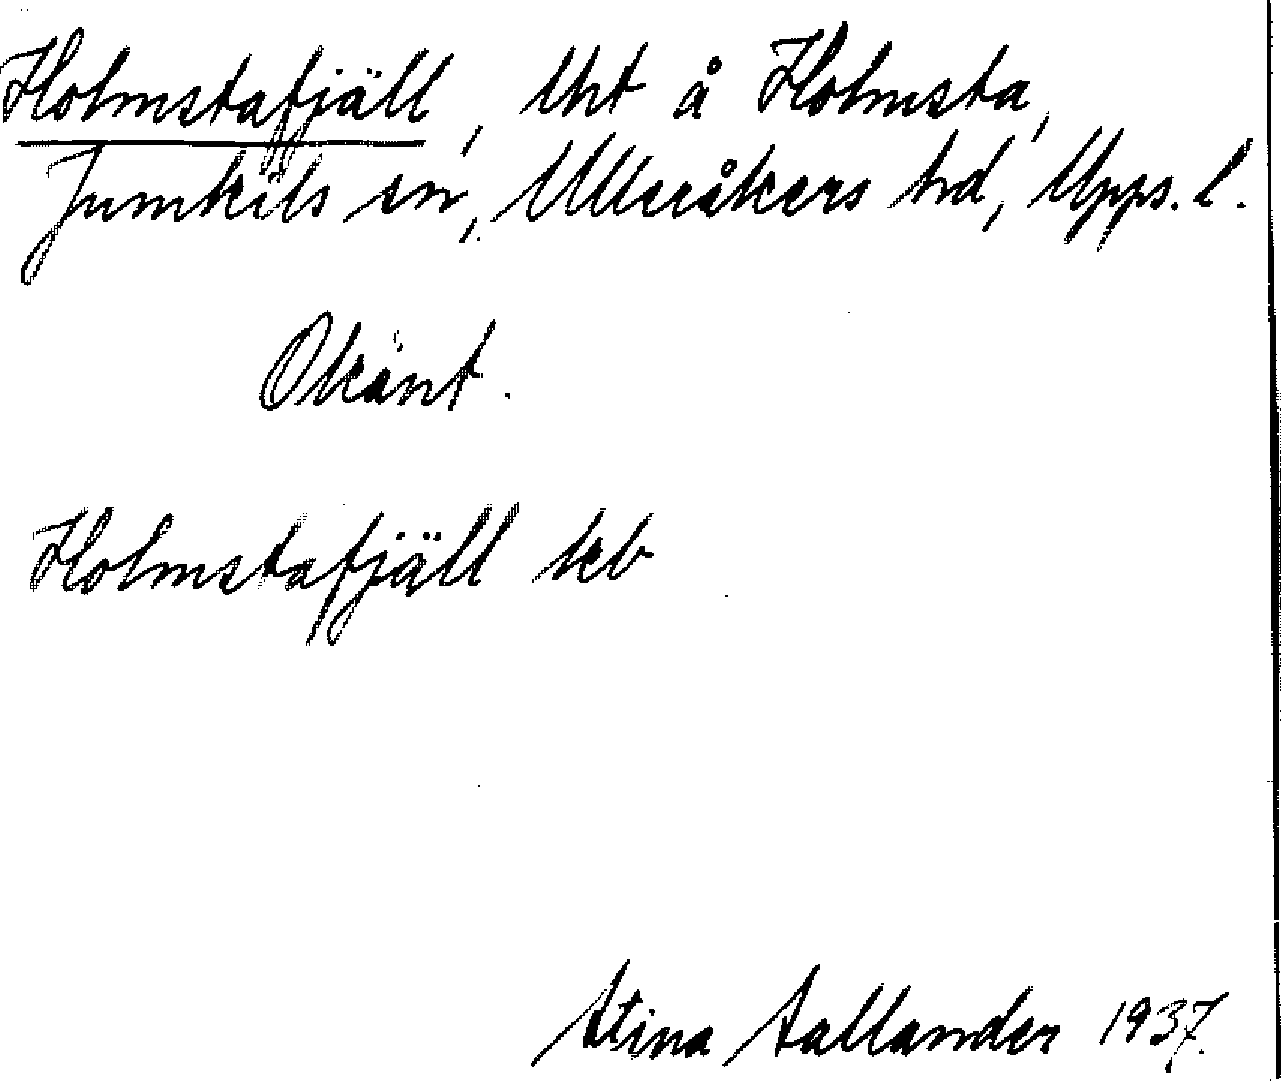 Holmstafjäll, Uht å Holmsta,
Jumkils sn, Ulleråkers hd, Upps. l.
Okänt.
Holmstafjäll kb
Stina Sallander 1937.